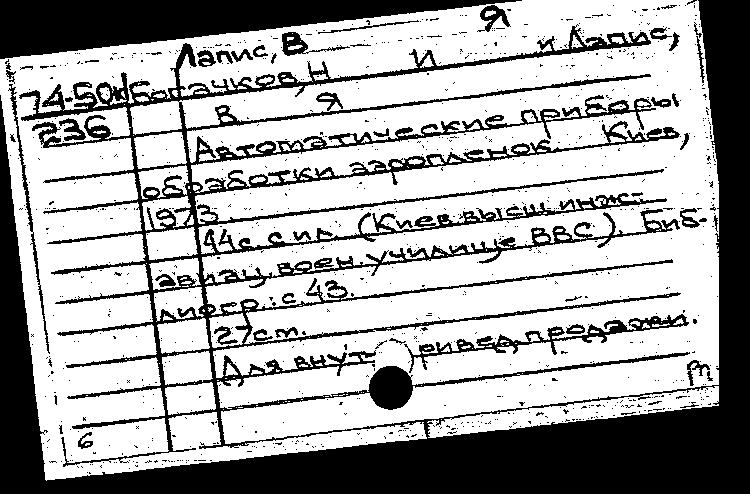 Лапис, В Я
74-50к Богачков, Н И и Лапис,
236 В Я
Автоматические приборы
обработки аэропленок. Киев,
1973.
44с. с ил. (Киев. высш. инж.
авиац. воен. училище ВВС). Биб-
лиогр.: с. 43.
27см.
Для внут ривед. продажи.
6